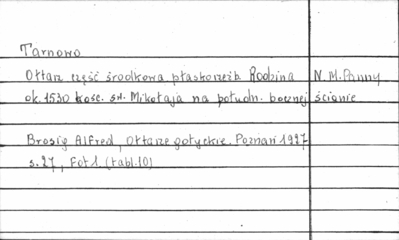 Tarnowo
Ołtarz część środkowa płaskorzeźb Rodzina N.M.Panny
ok. 1530 kośc. św. Mikołaja na połudn. bocznej ścianie
Brosig Alfred, Ołtarze gotyckie. Poznań 1927
s. 27, Fot 1. (tabl. 10)